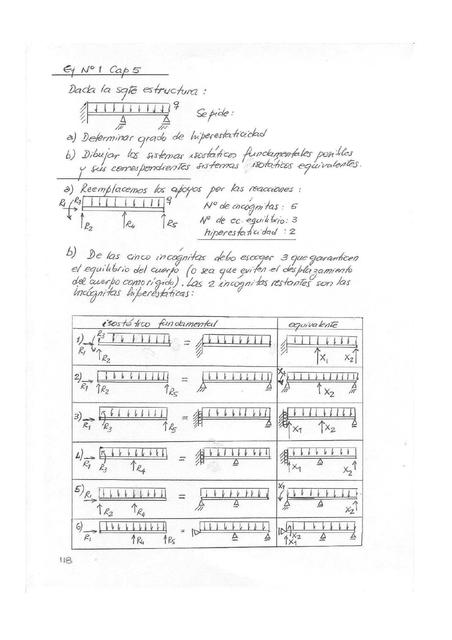 Ej Nº 1 Cap 5
Dada la sgte estructura:
q
Se pide:
a) Determinar grado de hiperestaticidad
b) Dibujar los sistemas isostáticos fundamentales posibles
y sus correspondientes sistemas isostaticos equivalentes.
a) Reemplacemos los apoyos por las reacciones:
R1 R3 q
R2 R4 R5
Nº de incógnitas: 5
Nº de ec. equilibrio: 3
hiperestaticidad: 2
b) De las cinco incógnitas debo escoger 3 que garanticen
el equilibrio del cuerpo (o sea que eviten el desplazamiento
del cuerpo como rígido). Las 2 incógnitas restantes son las
incógnitas hiperestáticas:
isostático fundamental equivalente
1) R1 R3 R2 = X1 X2
2) R1 R2 R5 = X1 X2
3) R1 R3 R5 = X1 X2
4) R1 R3 R4 = X1 X2
5) R1 R2 R4 = X1 X2
6) R1 R4 R5 = X2 X1
118